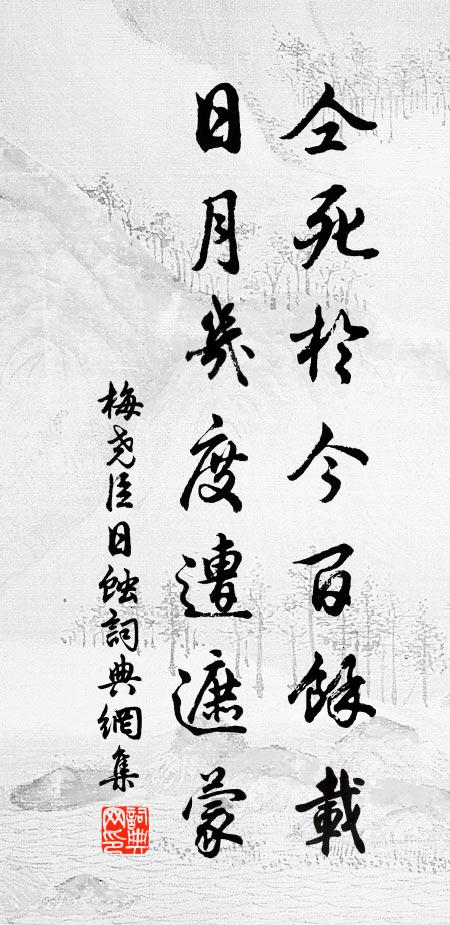 仝死於今百餘載
日月幾度遭遮蒙
梅堯臣日蝕詞典網集
詞典網印